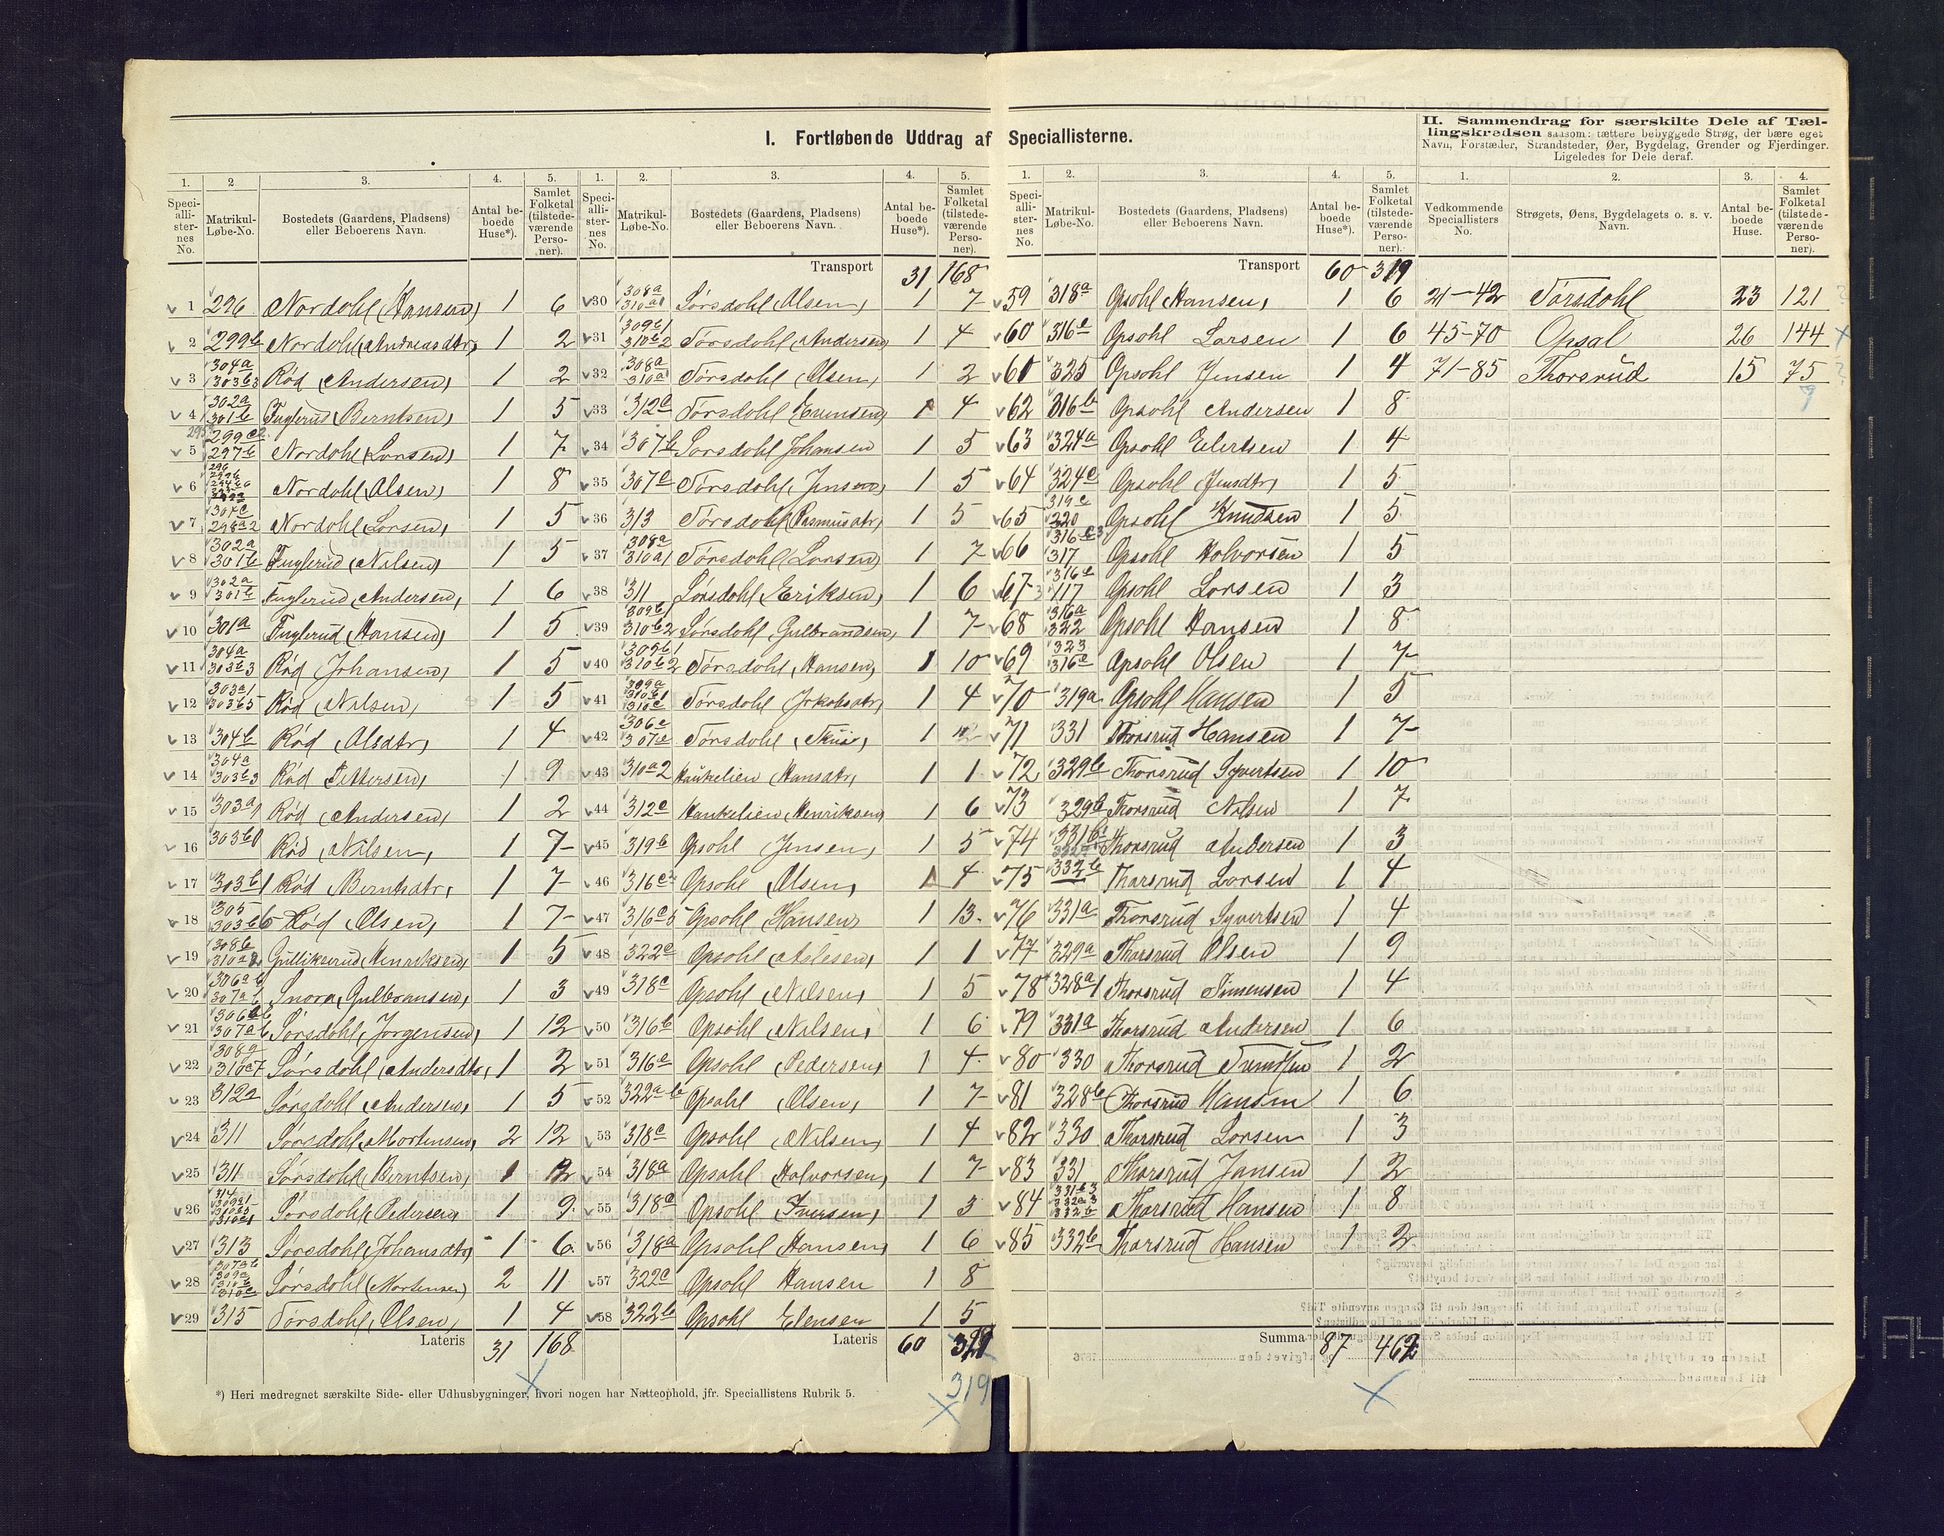 I. Fortløbende Uddrag af Speciallisterne.
II. Sammendrag for særskilte Dele af Tællingskredsen saasom: tættere bebyggede Strøg, der bære eget
Navn, Forstæder, Strandsteder, Øer, Bygdelag, Grender og Fjerdinger.
Ligeledes for Dele deraf.
1. 2 3. 4. 5.
Speciallisternes No. Matrikul-Løbe-No. Bostedets (Gaardens, Pladsens) eller Beboerens Navn. Antal beboede Huse*). Samlet Folketal (tilstedeværende Personer).
1 296 Nordohl (Hansen) 1 6
2 299b Nordohl (Andreasdtr) 1 2
3 304a 303b3 Rød (Andersen) 1 2
4 302a 301b Fuglerud (Berntsen) 1 5
5 299c2 297b Nordohl (Larsen) 1 7
6 Nordohl (Olsen) 1 8
7 298a2 Nordohl (Larsen) 1 5
8 302a 301b Fuglerud (Nilsen) 1 5
9 302a 301b Fuglerud (Andersen) 1 6
10 301a Fuglerud (Hansen) 1 5
11 304a 303b3 Rød (Johansen) 1 5
12 303a1 303b5 Rød (Nilsen) 1 5
13 304b Rød (Olsdtr) 1 4
14 304a 303b3 Rød (Pettersen) 1 9
15 303a1 Rød (Andersen) 1 2
16 Rød (Nilsen) 1 7
17 303b1 Rød (Berntsdtr) 1 7
18 305 303b6 Rød (Olsen) 1 7
19 308b Gullikerud (Henriksen) 1 5
20 306ab 307ab Snora (Gulbransen) 1 3
21 307ab Sørsdohl (Jørgensen) 1 12
22 308a 310c7 Sørsdohl (Andersdtr) 1 2
23 312a Sørsdohl (Andersen) 1 5
24 311 Sørsdohl (Mortensen) 2 12
25 311 Sørsdohl (Berntsen) 1 2
26 314 Sørsdohl (Pedersen) 1 9
27 313 Sørsdohl (Johansdtr) 1 6
28 Sørsdohl (Mortensen) 2 11
29 315 Tørsdohl (Olsen) 1 4
Lateris 31 168
*) Heri medregnet særskilte Side- eller Udhusbygninger, hvori nogen har Natteophold, jfr. Speciallistens Rubrik 5.
1. 2. 3. 4. 5.
Speciallisternes No. Matrikul-Løbe-No. Bostedets (Gaardens, Pladsens) eller Beboerens Navn. Antal beboede Huse*). Samlet Folketal (tilstedeværende Personer).
Transport 31 168
30 308a 310a1 Sørsdohl (Olsen) 1 7
31 309b1 310b2 Tørsdohl (Andersen) 1 4
32 308a 310a1 Tørsdohl (Olsen) 1 2
33 312c Tørsdohl 1 4
34 307b Sørsdohl Johansen 1 5
35 307c Tørsdohl (Jensen) 1 5
36 313 Tørsdohl (Rasmusdtr) 1 5
37 308a 310a1 Tørsdohl (Larsen) 1 7
38 311 Sørsdohl (Eriksen) 1 6
39 309b1 310b2 Sørsdohl (Gulbrandsen) 1 7
40 309b1 310b2 Tørsdohl (Hansen) 1 10
41 309a 310b1 310c Tørsdohl (Jakobsdtr) 1 4
42 306c 307c Tørsdohl 1
43 310a2 Haukelien (Hansdtr) 1 1
44 312c Haukelien (Henriksen) 1 6
45 319b Opsohl (Jensen) 1 5
46 316c Opsohl (Olsen) 1 4
47 316c5 Opsohl (Hansen) 1 13
48 322c Opsohl (Aslesen) 1 1
49 318c Opsohl (Nilsen) 1 5
50 316b Opsohl (Nilsen) 1 6
51 316c Opsohl (Pedersen) 1 4
52 322a-b Opsohl (Olsen) 1 7
53 318c Opsohl (Nilsen) 1 4
54 318a Opsohl (Halvorsen) 1 7
55 318a Opsohl (Iversen) 1 3
56 318a Opsohl (Hansen) 1 6
57 322c Opsohl Hansen 1 8
58 322b Opsohl Elensen 1 5
Lateris 60
319
1. 2. 3. 4. 5.
Speciallisternes No. Matrikul-Løbe-No. Bostedets (Gaardens, Pladsens) eller Beboerens Navn. Antal beboede Huse*). Samlet Folketal (tilstedeværende Personer).
Transport 60 319
59 318a Opsohl (Hansen) 1 6
60 316c Opsohl Larsen 1 6
61 325 Opsohl Jensen 1 4
62 316b Opsohl Andersen 1 8
63 324a Opsohl Eilertsen 1 4
64 324c Opsohl Jensdtr 1 5
65 319c 220 Opsohl Knudsen 1 5
66 316c3 317 Opsohl Halvorsen 1 5
67 316c 117 Opsohl Larsen 1 3
68 316a 322 Opsohl Hansen 1 8
69 323 316c Opsohl Olsen 1 7
70 319a Opsohl Hansen 1 5
71 331 Thorsrud Hansen 1 7
72 329b Thorsrud Syvertsen 1 10
73 329b Thorsrud Nilsen 1 7
74 331b Thorsrud Andersen 1 3
75 332b Thorsrud Larsen 1 4
76 331a Thorsrud Syvertsen 1 4
77 329a Thorsrud Olsen 1 9
78 328a1 Thorsrud Simensen 1 4
79 331a Thorsrud Andersen 1 6
80 330 Thorsrud 1 2
81 328b Thorsrud Hansen 1 6
82 330 Thorsrud Larsen 1 3
83 331 Thorsrud Jansen 1 2
84 331b3 332a3 332b Thorsrud Hansen 1 8
85 332b Thorsrud Hansen 1 2
Summa 87 462
1. 2. 3. 4.
Vedkommende Speciallisters No. Strøgets, Øens, Bygdelagets o. s. v. Navn. Antal beboede Huse. Samlet Folketal (tilstedeværende Personer).
21-42 Torsdohl 23 121
45-70 Opsal 26 144
71-85 Thorsrud 15 75
9